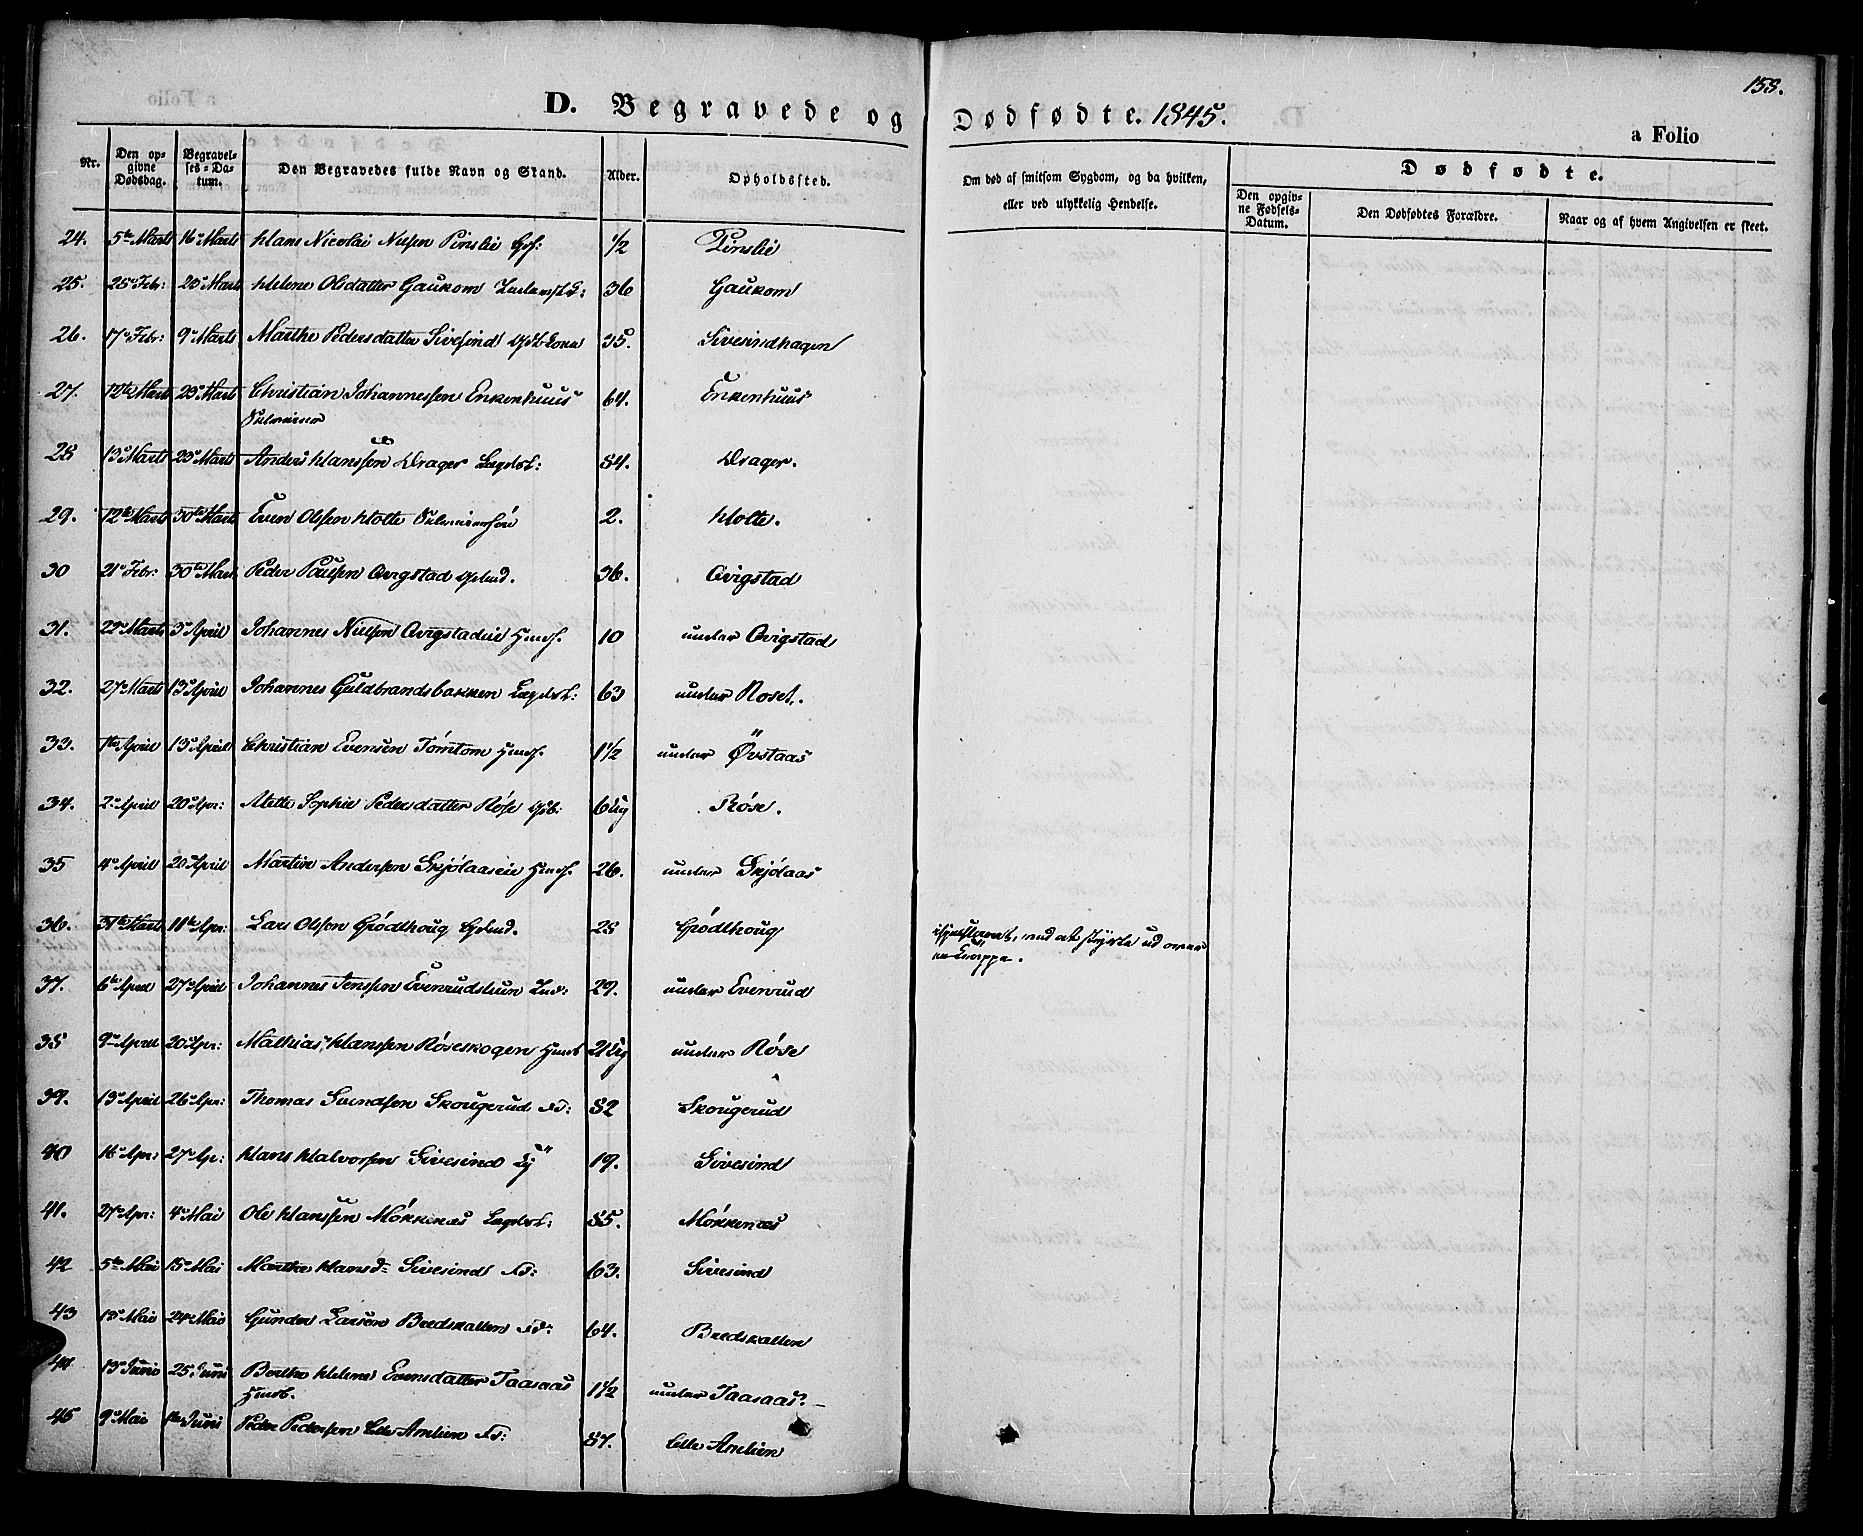 158.
D. Begravede og Dødfødte. 1845.
a Folio
Nr. Den opgivne Dødsdag. Begravelses-Datum. Den Begravedes fulde Navn og Stand. Alder. Opholdssted. Om død af smitsom Sygdom, og da hvilken, eller ved ulykkelig Hendelse. Dødfødte.
Den opgivne Fødsels-Datum. Den Dødfødtes Forældre. Naar og af hvem Angivelsen er skeet.
24. 5te Marts 16de Marts Hans Nicolai Nilsen Pinslie 1/2 Pinslie
25. 28 Febr: 23 Marts Helene Olsdatter Gaukom 36 Gaukom
26. 17 Febr: 9 Marts Marthe Pedersdatter Sivesind 35. Sivesindhagen
27. 12te Marts 23 Marts Christian Johannessen Enkenhuus 64. Enkenhuus
28 13 Marts 23 Marts Anders Hanssen Drager Lægdsl: 84. Drager.
29. 12te Marts 30te Marts Even Olssen Holte 2. Holte.
30 21 Febr: 30te Marts Peder Poulsen Qvigstad 36. Qvigstad
31. 22 Marts 3 April Johannes Nielsen Qvigstadeie Huusf. 10 under Qvigstad
32. 27 Marts 13 April Johannes Guldbrandsbakken Lægdsl: 63 under Roset.
33. 1te April 13 April Christian Evensen Tømtom Huusf. 1 1/2 under Øvstaas
34. 2 April 20 Apr: Mette Sophie Pedersdatter Røse 6 Ug Røse.
35 4 April 20 April Martin Andersen Skjølaaseie Huusf. 26. under Skjølaas
36. 31te Marts 11te Apr: Lars Olsen Grødthoug 28 Grødthoug ved at styrte ud over
37. 6te April 27 April Johannes Jenssen Evenrudstuen 29. under Evenrud
38 9 April 20 Apr: Mathias Hanssen Røseskogen 2 Ug under Røse
39. 13 April 26 Apr: Thomas Svendsen Skougerud Fd: 82 Skougerud
40 16 Apr: 27 Ap: Hans Halvorsen Sivesind 19. Sivesind
41. 27 Apr: 4 Mai Ole Hanssen Mökkenæs Lægdsl: 85. Mökkenæs
42 5te Mai 15 Mai Marthe Hansd. Sivesind Fd: 63. Sivesind
43 13 Mai 24 Mai Gunder Larsen Bredskallen Fd: 64. Bredskallen
44 13 Juni 25 Juni Berthe Helene Evensdatter Taasaas 1 1/2 under Taasaas
Huusb.
45 9 Mai 1te Juni Peder Pedersen Lille Amlien Fd: 87. Lille Amlien